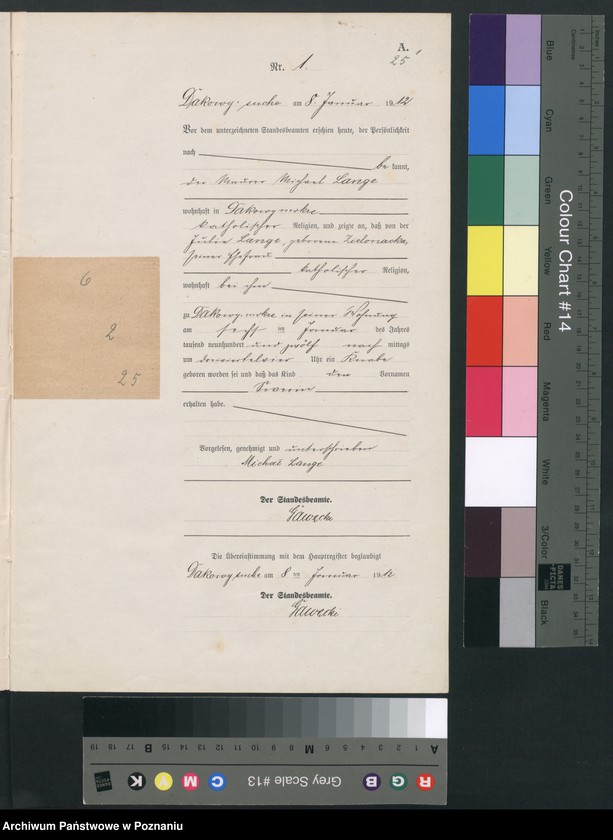 A.
25
Nr. 1.
Dakowy-suche am 8. Januar 1912
Vor dem unterzeichneten Standesbeamten erschien heute, der Persönlichkeit
nach
be kannt,
der Maurer Michael Lange
wohnhaft in Dakowy mokre
katholischer Religion, und zeigte an, daß von der
Julie Lange, geborene
seiner Ehefrau
katholischer Religion,
wohnhaft bei ihm
zu Dakowy mokre in seiner Wohnung
am sechs ten Januar des Jahres
tausend neunhundert und zwölf nach mittags
um dreiviertelvier Uhr ein Knabe
geboren worden sei und daß das Kind den Vornamen
Severin
erhalten habe.
Vorgelesen, genehmigt und unterschrieben
Michał Lange
Der Standesbeamte.
Gawęcki
Die Übereinstimmung mit dem Hauptregister beglaubigt
Dakowy suche am 8 ten Januar 1912
Der Standesbeamte.
Gawęcki
6
2
25
Colour Chart #14
Blue
Cyan
Green
Yellow
Red
Magenta
White
3/Color
Black
Centimetres
Inches
DANES
PICTA
Grey Scale #13
R G B
C M Y K
A 1 2 3 4 5 6 M 8 9 10 11 12 13 14 15 B 17 18 19
Archiwum Państwowe w Poznaniu